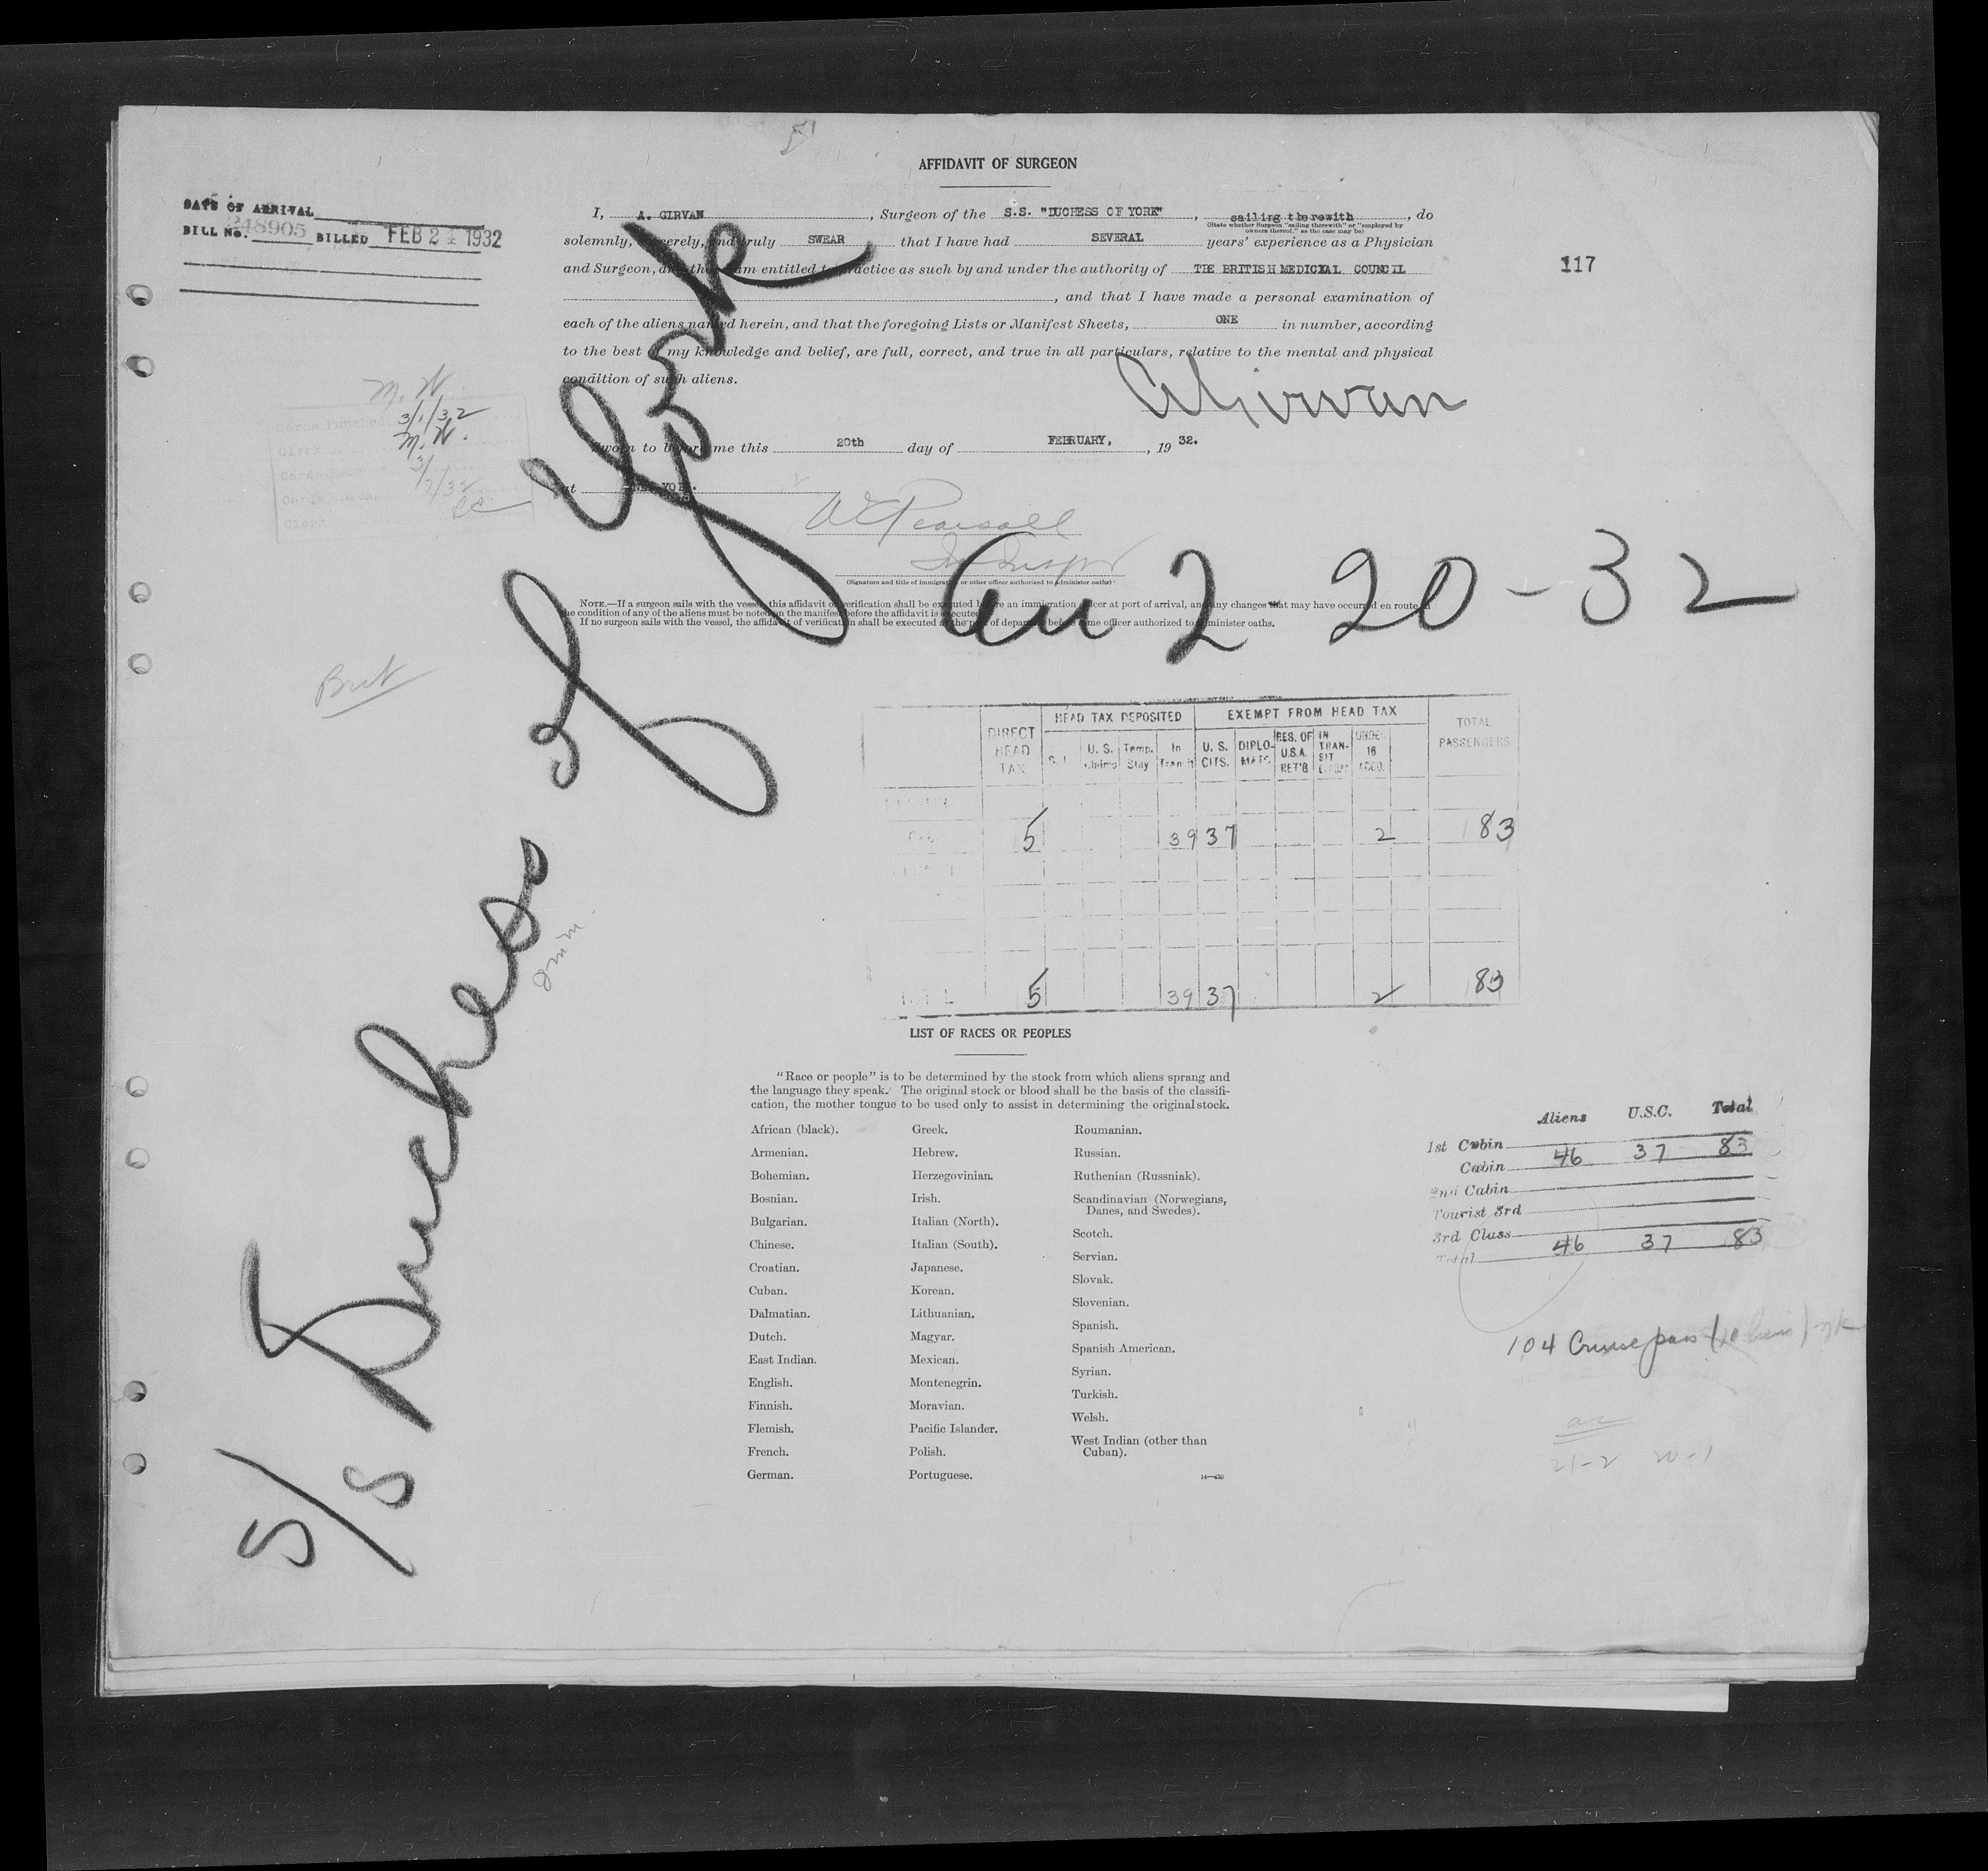 AFFIDAVIT OF SURGEON
DATE OF ARRIVAL
BILL No. 248905 BILLED FEB 24 1932
I, A. GIRVAN, Surgeon of the S.S. "DUCHESS OF YORK", sailing therewith, do
(State whether Surgeon "sailing therewith" or "employed by
owners thereof," as the case may be)
solemnly, sincerely, and truly SWEAR that I have had SEVERAL years' experience as a Physician
and Surgeon, and that I am entitled to practice as such by and under the authority of THE BRITISH MEDICXAL COUNCIL
117
, and that I have made a personal examination of
each of the aliens named herein, and that the foregoing Lists or Manifest Sheets, ONE in number, according
to the best of my knowledge and belief, are full, correct, and true in all particulars, relative to the mental and physical
condition of such aliens.
A Girvan
M. W.
Cards Punched 3/1/32
Clerk M. W.
3/7/32
Clerk
Sworn to before me this 20th day of FEBRUARY, 19 32.
at NEW YORK.
W E Pearsall
(Signature and title of immigration or other officer authorized to administer oaths)
NOTE.—If a surgeon sails with the vessel, this affidavit of verification shall be executed before an immigration officer at port of arrival, and any changes that may have occurred en route in
the condition of any of the aliens must be noted on the manifest before the affidavit is executed.
If no surgeon sails with the vessel, the affidavit of verification shall be executed at the port of departure before some officer authorized to administer oaths.
S/S Duchess of York
Arr 2 20-32
Brit
DIRECT HEAD TAX
HEAD TAX DEPOSITED
EXEMPT FROM HEAD TAX
TOTAL PASSENGERS
U. S. Claims
Temp. Stay
In Transit
U. S. CITS.
DIPLOMATS
RES. OF U.S.A. RET'G
IN TRANSIT
UNDER 16 ACCO.
5 39 37 2 83
TOTAL 5 39 37 2 83
LIST OF RACES OR PEOPLES
"Race or people" is to be determined by the stock from which aliens sprang and
the language they speak. The original stock or blood shall be the basis of the classifi-
cation, the mother tongue to be used only to assist in determining the original stock.
African (black).
Armenian.
Bohemian.
Bosnian.
Bulgarian.
Chinese.
Croatian.
Cuban.
Dalmatian.
Dutch.
East Indian.
English.
Finnish.
Flemish.
French.
German.
Greek.
Hebrew.
Herzegovinian.
Irish.
Italian (North).
Italian (South).
Japanese.
Korean.
Lithuanian.
Magyar.
Mexican.
Montenegrin.
Moravian.
Pacific Islander.
Polish.
Portuguese.
Roumanian.
Russian.
Ruthenian (Russniak).
Scandinavian (Norwegians,
Danes, and Swedes).
Scotch.
Servian.
Slovak.
Slovenian.
Spanish.
Spanish American.
Syrian.
Turkish.
Welsh.
West Indian (other than
Cuban).
Aliens U.S.C. Total
1st Cabin
Cabin 46 37 83
2nd Cabin
Tourist 3rd
3rd Class
Total 46 37 83
104 Cruise pass
21-2 20-1